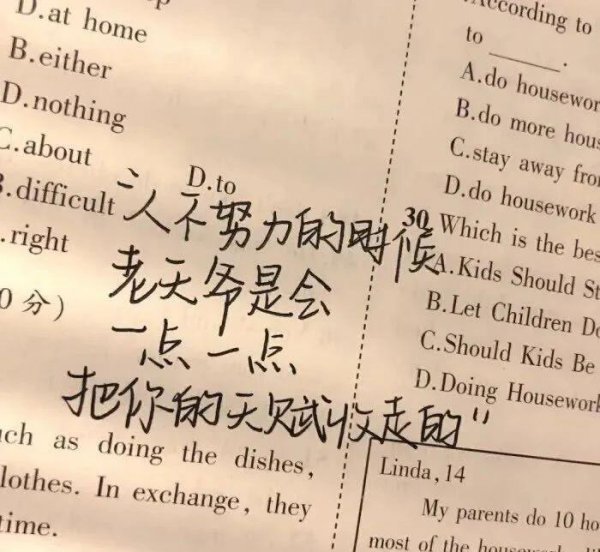 D.at home
B.either
D.nothing
C.about
D.to
B.difficult
.right
0分)
"人不努力的时候
老天爷是会
一点一点
把你的天赋收走的"
such as doing the dishes,
clothes. In exchange, they
time.
According to
to ______.
A.do housewor
B.do more hous
C.stay away fro
D.do housework
30 Which is the bes
A.Kids Should St
B.Let Children Do
C.Should Kids Be
D.Doing Housework
Linda,14
My parents do 10 ho
most of the housework